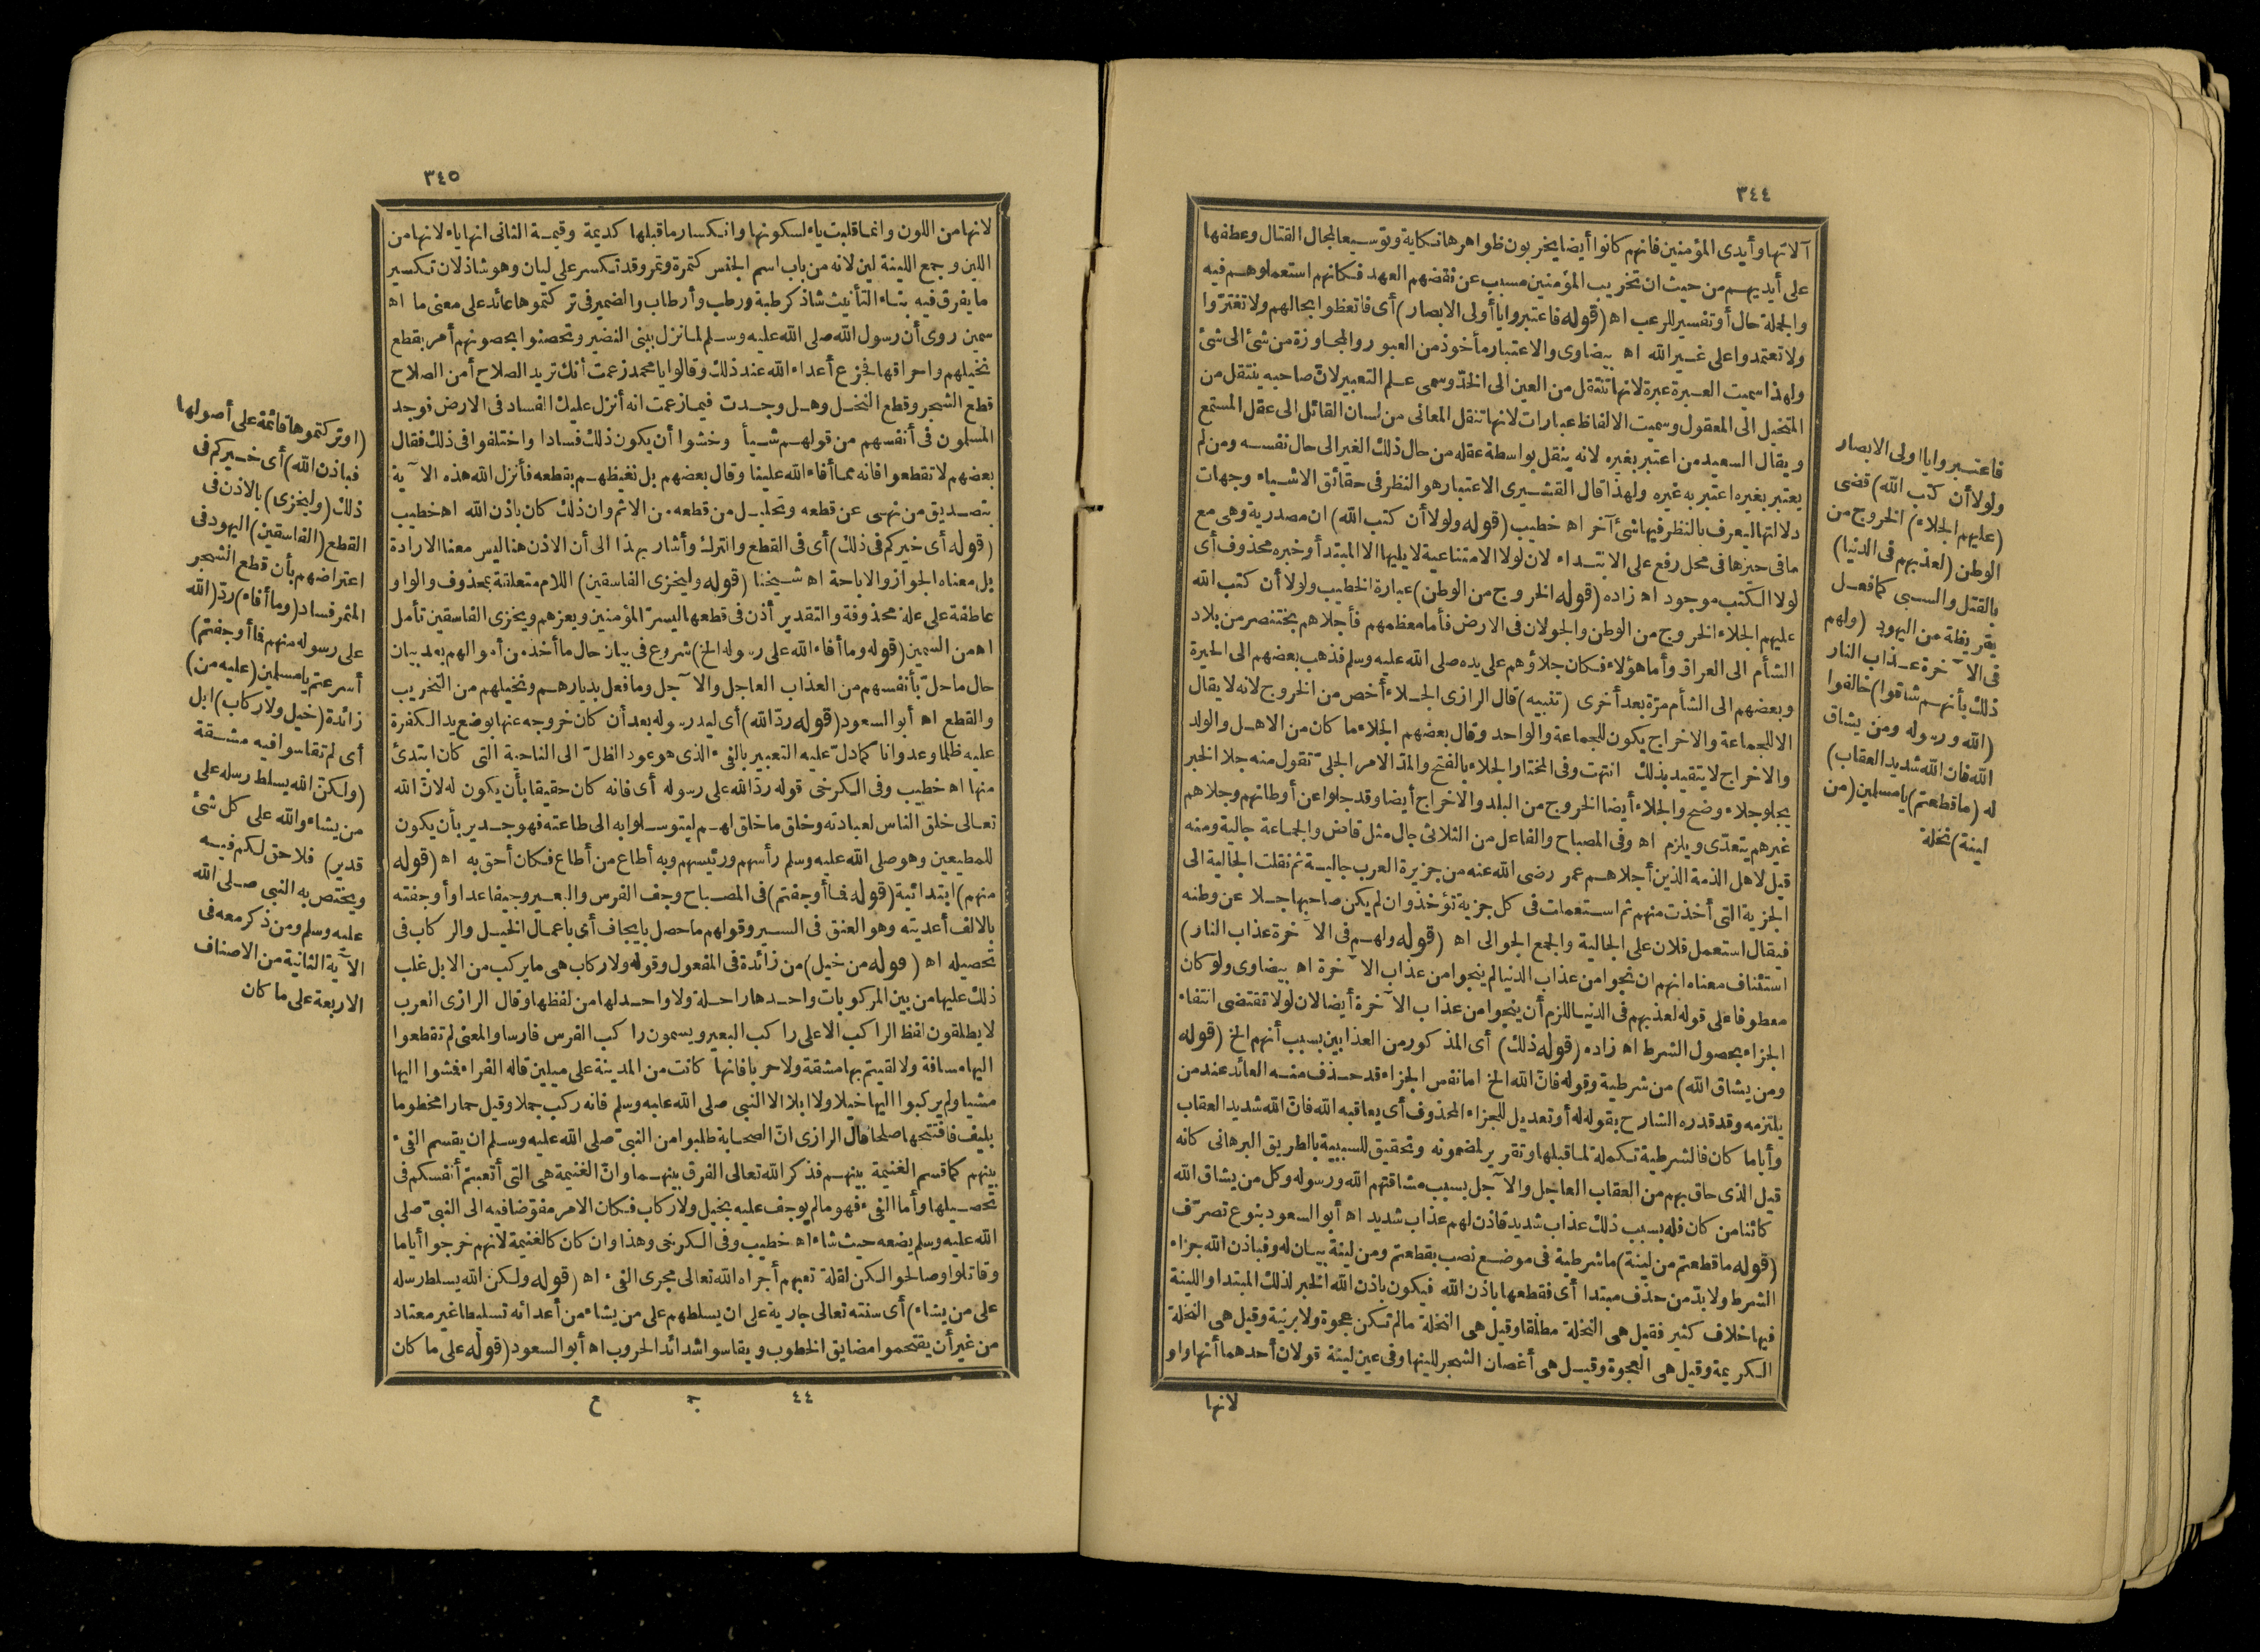 ٣٤٤
آلاتها وأيدى المؤمنين فانهم كانوا أيضا يخربون ظواهرها نكاية وتوسيعا لمجال القتال وعطفها
على أيديهم من حيث ان تخريب المؤمنين مسبب عن نقضهم العهد فكانهم استعملوهم فيه
والجملة حال أو تفسير للرعب اه (قوله فاعتبروا يا أولى الابصار) أى فاتعظوا بحالهم ولا تغترّوا
ولا تعتمدوا على غير الله اه بيضاوى والاعتبار مأخوذ من العبور والمجاوزة من شئ الى شئ
ولهذا سميت العبرة عبرة لانها تنتقل من العين الى الخدّ وسمى علم التعبير لانّ صاحبه ينتقل من
المتخيل الى المعقول وسميت الالفاظ عبارات لانها تنقل المعانى من لسان القائل الى عقل المستمع
ويقال السعيد من اعتبر بغيره لانه ينقل بواسطة عقله من حال ذلك الغير الى حال نفسه ومن لم
يعتبر بغيره اعتبر به غيره ولهذا قال القشيرى الاعتبار هو النظر فى حقائق الاشياء وجهات
دلالتها ليعرف بالنظر فيها شئ آخر اه خطيب (قوله ولولا أن كتب الله) ان مصدرية وهى مع
مافى حيزها فى محل رفع على الابتداء لان لولا الامتناعية لا يليها الا المبتدأ وخبره محذوف أى
لولا الكتب موجود اه زاده (قوله الخروج من الوطن) عبارة الخطيب ولولا أن كتب الله
عليهم الجلاء الخروج من الوطن والجولان فى الارض فأما معظمهم فأجلاهم بختنصر من بلاد
الشأم الى العراق وأما هؤلاء فكان جلاؤهم على يده صلى الله عليه وسلم فذهب بعضهم الى الحيرة
وبعضهم الى الشأم مرّة بعد أخرى (تنبيه) قال الرازى الجلاء أخص من الخروج لانه لا يقال
الا للجماعة والاخراج يكون للجماعة والواحد وقال بعضهم الجلاء ما كان من الاهل والولد
والاخراج لا يتقيد بذلك انتهت وفى المختار الجلاء بالفتح والمدّ الامر الجلىّ تقول منه جلا الخبر
يجلو جلاء وضح والجلاء أيضا الخروج من البلد والاخراج أيضا وقد جلوا عن أوطانهم وجلاهم
غيرهم يتعدّى ويلزم اه وفى المصباح والفاعل من الثلاثى جال مثل قاض والجماعة جالية ومنه
قيل لاهل الذمة الذين أجلاهم عمر رضى الله عنه من جزيرة العرب جالية ثم نقلت الجالية الى
الجزية التى أخذت منهم ثم استعملت فى كل جزية تؤخذ وان لم يكن صاحبها جلا عن وطنه
فيقال استعمل فلان على الجالية والجمع الجوالى اه (قوله ولهم فى الآخرة عذاب النار)
استئناف معناه انهم ان نجوا من عذاب الدنيا لم ينجوا من عذاب الآخرة اه بيضاوى ولو كان
معطوفا على قوله لعذبهم فى الدنيا للزم أن ينجوا من عذاب الآخرة أيضا لان لولا تقتضى انتفاء
الجزاء بحصول الشرط اه زاده (قوله ذلك) أى المذكور من العذابين بسبب أنهم الخ (قوله
ومن يشاق الله) من شرطية وقوله فانّ الله الخ اما نفس الجزاء قد حذف منه العائد عند من
يلتزمه وقد قدره الشارح بقوله له أو تعديل للجزاء المحذوف أى يعاقبه الله فانّ الله شديد العقاب
وأيا ما كان فالشرطية تكملة لما قبلها وتقرير لمضمونه وتحقيق للسببية بالطريق البرهانى كأنه
قيل الذى حاق بهم من العقاب العاجل والآجل بسبب مشاقتهم الله ورسوله وكل من يشاق الله
كائنا من كان فله بسبب ذلك عذاب شديد فاذن لهم عذاب شديد اه أبو السعود بنوع تصرّف
(قوله ما قطعتم من لينة) ما شرطية فى موضع نصب بقطعتم ومن لينة بيان له وفباذن الله جزاء
الشرط ولا بدّ من حذف مبتدا أى فقطعها باذن الله فيكون باذن الله الخبر لذلك المبتدا واللينة
فيها خلاف كثير فقيل هى النخلة مطلقا وقيل هى النخلة مالم تكن عجوة ولا برنية وقيل هى النخلة
الكريمة وقيل هى العجوة وقيل هى أغصان الشجر للينها وفى عين لينة قولان أحدهما أنها واو
لانها
فاعتبروا يا اولى الابصار
ولولا أن كتب الله) قضى
(عليهم الجلاء) الخروج من
الوطن (لعذبهم فى الدنيا)
بالقتل والسبى كما فعل
بقريظة من اليهود (ولهم
فى الآخرة عذاب النار
ذلك بأنهم شاقوا) خالفوا
(الله ورسوله ومن يشاق
الله فان الله شديد العقاب)
له (ما قطعتم) يا مسلمين (من
لينة) نخلة
٣٤٥
لانها من اللون وانما قلبت ياء لسكونها وانكسار ما قبلها كديمة وقيمة الثانى انها ياء لانها من
اللين وجمع اللينة لين لانه من باب اسم الجنس كتمرة وتمر وقد تكسر على ليان وهو شاذ لان تكسير
ما يفرق فيه بتاء التأنيث شاذ كرطبة ورطب وأرطاب والضمير فى تركتموها عائد على معنى ما اه
سمين روى أن رسول الله صلى الله عليه وسلم لما نزل ببنى النضير وتحصنوا بحصونهم أمر بقطع
نخيلهم واحراقها فجزع أعداء الله عند ذلك وقالوا يا محمد زعمت أنك تريد الصلاح أمن الصلاح
قطع الشجر وقطع النخل وهل وجدت فيما زعمت انه أنزل عليك الفساد فى الارض فوجد
المسلمون فى أنفسهم من قولهم شيأ وخشوا أن يكون ذلك فسادا واختلفوا فى ذلك فقال
بعضهم لا تقطعوا فانه مما أفاء الله علينا وقال بعضهم بل نغيظهم بقطعه فأنزل الله هذه الآية
بتصديق من نهى عن قطعه وتحليل من قطعه من الاثم وان ذلك كان باذن الله اه خطيب
(قوله أى خيركم فى ذلك) أى فى القطع والترك وأشار بهذا الى أن الاذن هنا ليس معناه الارادة
بل معناه الجواز والاباحة اه شيخنا (قوله وليخزى الفاسقين) اللام متعلقة بمحذوف والواو
عاطفة على علة محذوفة والتقدير أذن فى قطعها ليسرّ المؤمنين ويعزهم ويخزى الفاسقين تأمل
اه من السمين (قوله وما أفاء الله على رسوله الخ) شروع فى بيان حال ما أخذ من أموالهم بعد بيان
حال ما حلّ بأنفسهم من العذاب العاجل والآجل وما فعل بديارهم ونخيلهم من التخريب
والقطع اه أبو السعود (قوله ردّ الله) أى ليد رسوله بعد أن كان خروجه عنها بوضع يد الكفرة
عليه ظلما وعدوانا كما دلّ عليه التعبير بالفىء الذى هو عود الظلّ الى الناحية التى كان ابتدئ
منها اه خطيب وفى الكرخى قوله ردّ الله على رسوله أى فانه كان حقيقا بأن يكون له لانّ الله
تعالى خلق الناس لعبادته وخلق ما خلق لهم ليتوسلوا به الى طاعته فهو جدير بأن يكون
للمطيعين وهو صلى الله عليه وسلم رأسهم ورئيسهم وبه أطاع من أطاع فكان أحق به اه (قوله
منهم) ابتدائية (قوله فما أوجفتم) فى المصباح وجف الفرس والبعير وجيفا عدا وأوجفته
بالالف أعديته وهو العنق فى السير وقولهم ما حصل بايجاف أى باعمال الخيل والركاب فى
تحصيله اه (قوله من خيل) من زائدة فى المفعول وقوله ولا ركاب هى ما يركب من الابل غلب
ذلك عليها من بين المركوبات واحدها راحلة ولا واحد لها من لفظها وقال الرازى العرب
لا يطلقون لفظ الراكب الا على راكب البعير ويسمون راكب الفرس فارسا والمعنى لم تقطعوا
اليها مسافة ولا لقيتم بها مشقة ولا حربا فانها كانت من المدينة على ميلين قاله الفراء فمشوا اليها
مشيا ولم يركبوا اليها خيلا ولا ابلا الا النبى صلى الله عليه وسلم فانه ركب جملا وقيل حمارا مخطوما
بليف فافتتحها صلحا قال الرازى انّ الصحابة طلبوا من النبىّ صلى الله عليه وسلم ان يقسم الفىء
بينهم كما قسم الغنيمة بينهم فذكر الله تعالى الفرق بينهما وانّ الغنيمة هى التى أتعبتم أنفسكم فى
تحصيلها وأما الفىء فهو مالم يوجف عليه بخيل ولا ركاب فكان الامر مفوّضا فيه الى النبىّ صلى
الله عليه وسلم يضعه حيث شاء اه خطيب وفى الكرخى وهذا وان كان كالغنيمة لانهم خرجوا أياما
وقاتلوا وصالحوا لكن لقلة تعبهم أجراه الله تعالى مجرى الفىء اه (قوله ولكن الله يسلط رسله
على من يشاء) أى سنته تعالى جارية على ان يسلطهم على من يشاء من أعدائه تسليطا غير معتاد
من غير أن يقتحموا مضايق الخطوب ويقاسوا شدائد الحروب اه أبو السعود (قوله على ما كان
٤٤ ج ع
(اوتركتموها قائمة على أصولها
فباذن الله) أى خيركم فى
ذلك (وليخزى) بالاذن فى
القطع (الفاسقين) اليهود فى
اعتراضهم بأن قطع الشجر
المثمر فساد (وما أفاء) ردّ (الله
على رسوله منهم فما أوجفتم)
أسرعتم يا مسلمين (عليه من)
زائدة (خيل ولا ركاب) ابل
أى لم تقاسوا فيه مشقة
(ولكنّ الله يسلط رسله على
من يشاء والله على كل شئ
قدير) فلا حق لكم فيه
ويختص به النبى صلى الله
عليه وسلم ومن ذكر معه فى
الآية الثانية من الاصناف
الاربعة على ما كان